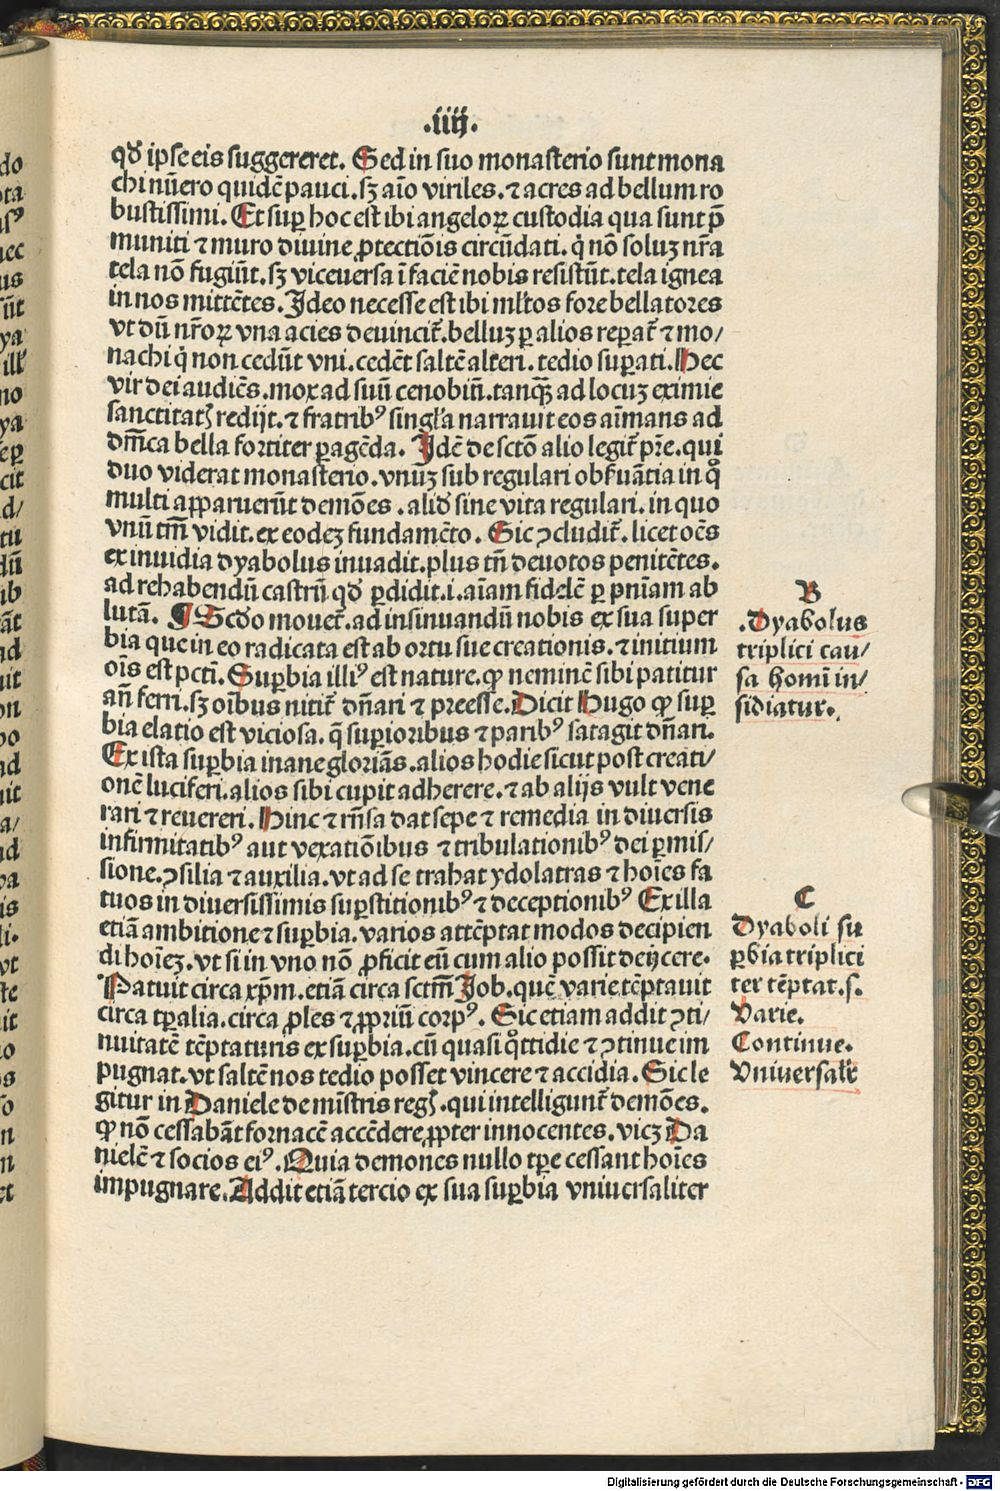 .iiij.
qđ ipse eis suggereret. Sed in suo monasterio sunt mona
chi nũero quidẽ pauci. sꝫ aĩo viriles. ⁊ acres ad bellum ro
bustissimi. Et suꝑ hoc est ibi angeloꝝ custodia qua sunt p̄
muniti ⁊ muro diuine ꝓtectiõis circũdati. q̇ nõ soluꝫ nr̃a
tela nõ fugiũt. sꝫ viceuersa ĩ faciẽ nobis resistũt. tela ignea
in nos mittẽtes. Jdeo necesse est ibi ml̃tos fore bellatores
vt dũ nr̃oꝝ vna acies deuincit̃. belluꝫ ꝑ alios reꝑat̃ ⁊ mo/
nachi q̇ non cedũt vni. cedẽt saltẽ alteri. tedio suꝑati. Hec
vir dei audiẽs. mox ad suũ cenobiũ. tanqꝫ̃ ad locuꝫ eximie
sanctitatꝭ redijt. ⁊ fratribꝰ singl̃a narrauit eos aĩmans ad
dm̃ca bella fortiter ꝑagẽda. Jdẽ de sctõ alio legit̃ pr̃e. qui
duo viderat monasterio. vnũꝫ sub regulari obẜuãtia in qͦ
multi apparuerũt demões. aliđ sine vita regulari. in quo
vnũ tm̃ vidit. ex eodeꝫ fundamẽto. Sic ↄcludit̃. licet oẽs
ex inuidia dyabolus inuadit. plus tñ deuotos penitẽtes.
ad rehabendũ castrũ qđ ꝑdidit. i. aĩam fidelẽ ꝑ pñiam ab
lutã. ¶ Scđo mouet̃. ad insinuandũ nobis ex sua super
bia que in eo radicata est ab ortu sue creationis. ⁊ initium
oĩs est pctĩ. Suꝑbia illiꝰ est nature. ꝙ neminẽ sibi patitur
añ ferri. sꝫ oĩbus nitit̃ dñari ⁊ preesse. Dicit Hugo ꝙ suꝑ
bia elatio est viciosa. q̃ suꝑioribus ⁊ paribꝰ satagit dñari.
Ex ista suꝑbia inane gloriãs. alios hodie sicut post creati/
onẽ luciferi. alios sibi cupit adherere. ⁊ ab alijs vult vene
rari ⁊ reuereri. Hinc ⁊ rñsa dat sepe ⁊ remedia in diuersis
infirmitatibꝰ aut vexatiõibus ⁊ tribulationibꝰ dei ꝑmis/
sione. ↄsilia ⁊ auxilia. vt ad se trahat ydolatras ⁊ hoĩes fa
tuos in diuersissimis suꝑstitionibꝰ ⁊ deceptionibꝰ Ex illa
etiã ambitione ⁊ suꝑbia. varios attẽptat modos decipien
di hoĩeꝫ. vt si in vno nõ ꝓficit eũ cum alio possit deijcere.
Patuit circa xp̄m. etiã circa sctm̃ Job. quẽ varie tẽptauit
circa tꝑalia. circa ꝓles ⁊ ꝓpriũ corpꝰ. Sic etiam addit ↄti/
nuitatẽ tẽptaturis ex suꝑbia. cũ quasi qͦttidie ⁊ ↄtinue im
pugnat. vt saltẽ nos tedio posset vincere ⁊ accidia. Sic le
gitur in Daniele de mĩstris regꝭ. qui intelligunt̃ demões.
ꝙ nõ cessabãt fornacẽ accẽdere ꝓpter innocentes. vicꝫ Da
nielẽ ⁊ socios eiꝰ. Quia demones nullo tꝑe cessant hoĩes
impugnare. Addit etiã tercio ex sua suꝑbia vniuersaliter
B
.Dyabolus
triplici cau/
sa homĩ in/
sidiatur.
C
Dyaboli su
ꝑbia triplici
ter tẽptat. s.
Varie.
Continue.
Vniuersalr̃
Digitalisierung gefördert durch die Deutsche Forschungsgemeinschaft - DFG